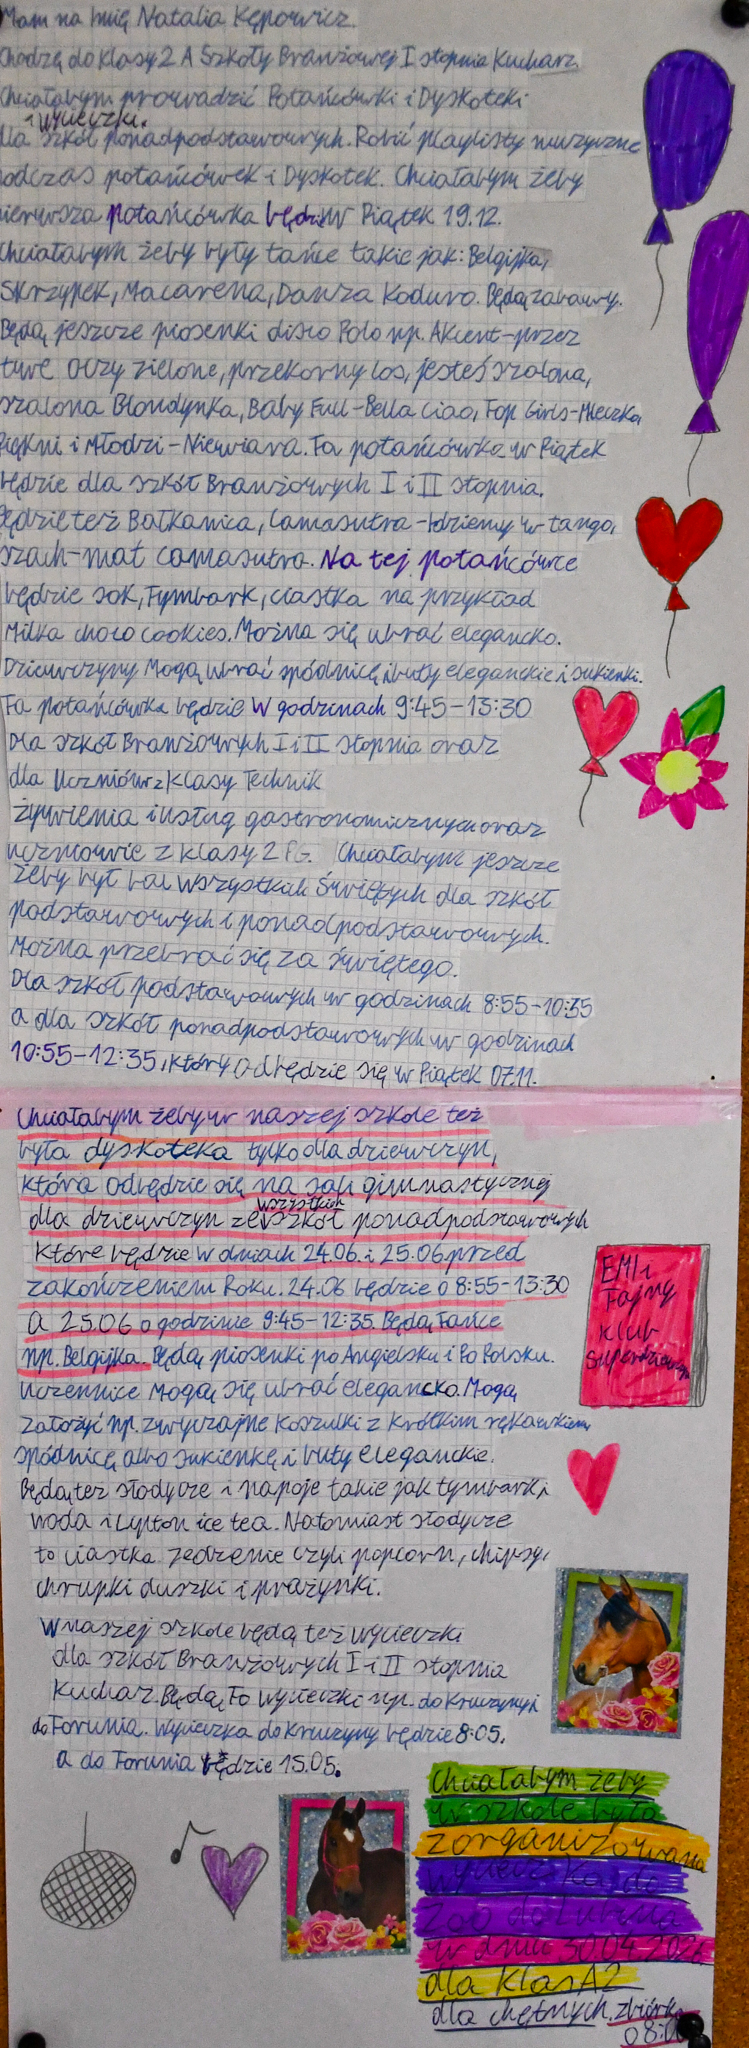 Mam na Imię Natalia Kępowicz.
Chodzę do klasy 2 A Szkoły Branżowej I stopnia Kucharz.
Chciałabym prowadzić Potańcówki i Dyskoteki
i wycieczki.
dla szkół ponadpodstawowych. Robić playlisty muzyczne
podczas potańcówek i Dyskotek. Chciałabym żeby
pierwsza potańcówka będzie w Piątek 19.12.
Chciałabym żeby były tańce takie jak: Belgijka,
Skrzypek, Macarena, Danza Koduro. Będą zabawy.
Będą jeszcze piosenki disco Polo np. Akcent-przez
twe oczy zielone, przekorny los, jesteś szalona,
szalona Blondynka, Baby Full-Bella Ciao, Top Girls-Mleczko,
Piękni i Młodzi-Niewiara. Ta potańcówka w Piątek
będzie dla szkół Branżowych I i II stopnia.
Będzie też Bałkanica, Camasutra-Idziemy w tango,
szach-mat camasutra. Na tej potańcówce
będzie sok, Tymbark, ciastka na przykład
Milka choco cookies. Można się ubrać elegancko.
Dziewczyny Mogą ubrać spódnicę i buty eleganckie i sukienki.
Ta potańcówka będzie w godzinach 9:45-13:30
Dla szkół Branżowych I i II stopnia oraz
dla Uczniów z klasy Technik
żywienia i usług gastronomicznych oraz
uczniowie z klasy 2 PG. Chciałabym jeszcze
żeby był bal wszystkich Świętych dla szkół
podstawowych i ponadpodstawowych.
Można przebrać się za świętego.
Dla szkół podstawowych w godzinach 8:55-10:35
a dla szkół ponadpodstawowych w godzinach
10:55-12:35, który odbędzie się w Piątek 07.11.
Chciałabym żeby w naszej szkole też
była dyskoteka tylko dla dziewczyn,
która odbędzie się na sali gimnastycznej
wszystkich
dla dziewczyn ze szkół ponadpodstawowych
które będzie w dniach 24.06. i 25.06 przed
zakończeniem Roku. 24.06 będzie o 8:55-13:30
a 25.06 o godzinie 9:45-12:35. Będą Tańce
np. Belgijka. Będą piosenki po Angielsku i Po Polsku.
uczennice Mogą się ubrać elegancko. Mogą
założyć np. zwyczajne koszulki z krótkim rękawkiem,
spódnicę albo sukienkę i buty eleganckie.
Będą też słodycze i napoje takie jak tymbarki,
woda i Lypton ice tea. Natomiast słodycze
to ciastka. Jedzenie czyli popcorn, chipsy,
chrupki duszki i prażynki.
EMI i
Tajny
Klub
Superdziewczyn
W naszej szkole będą też wycieczki
dla szkół Branżowych I i II stopnia
Kucharz. Będą To wycieczki np. do Kruszyny i
do Torunia. Wycieczka do Kruszyny będzie 8.05.
a do Torunia będzie 15.05.
Chciałabym żeby
w szkole była
zorganizowana
wycieczka do
Zoo do Lubina
w dniu 30.04.2026
dla klas A2
dla chętnych. zbiórka